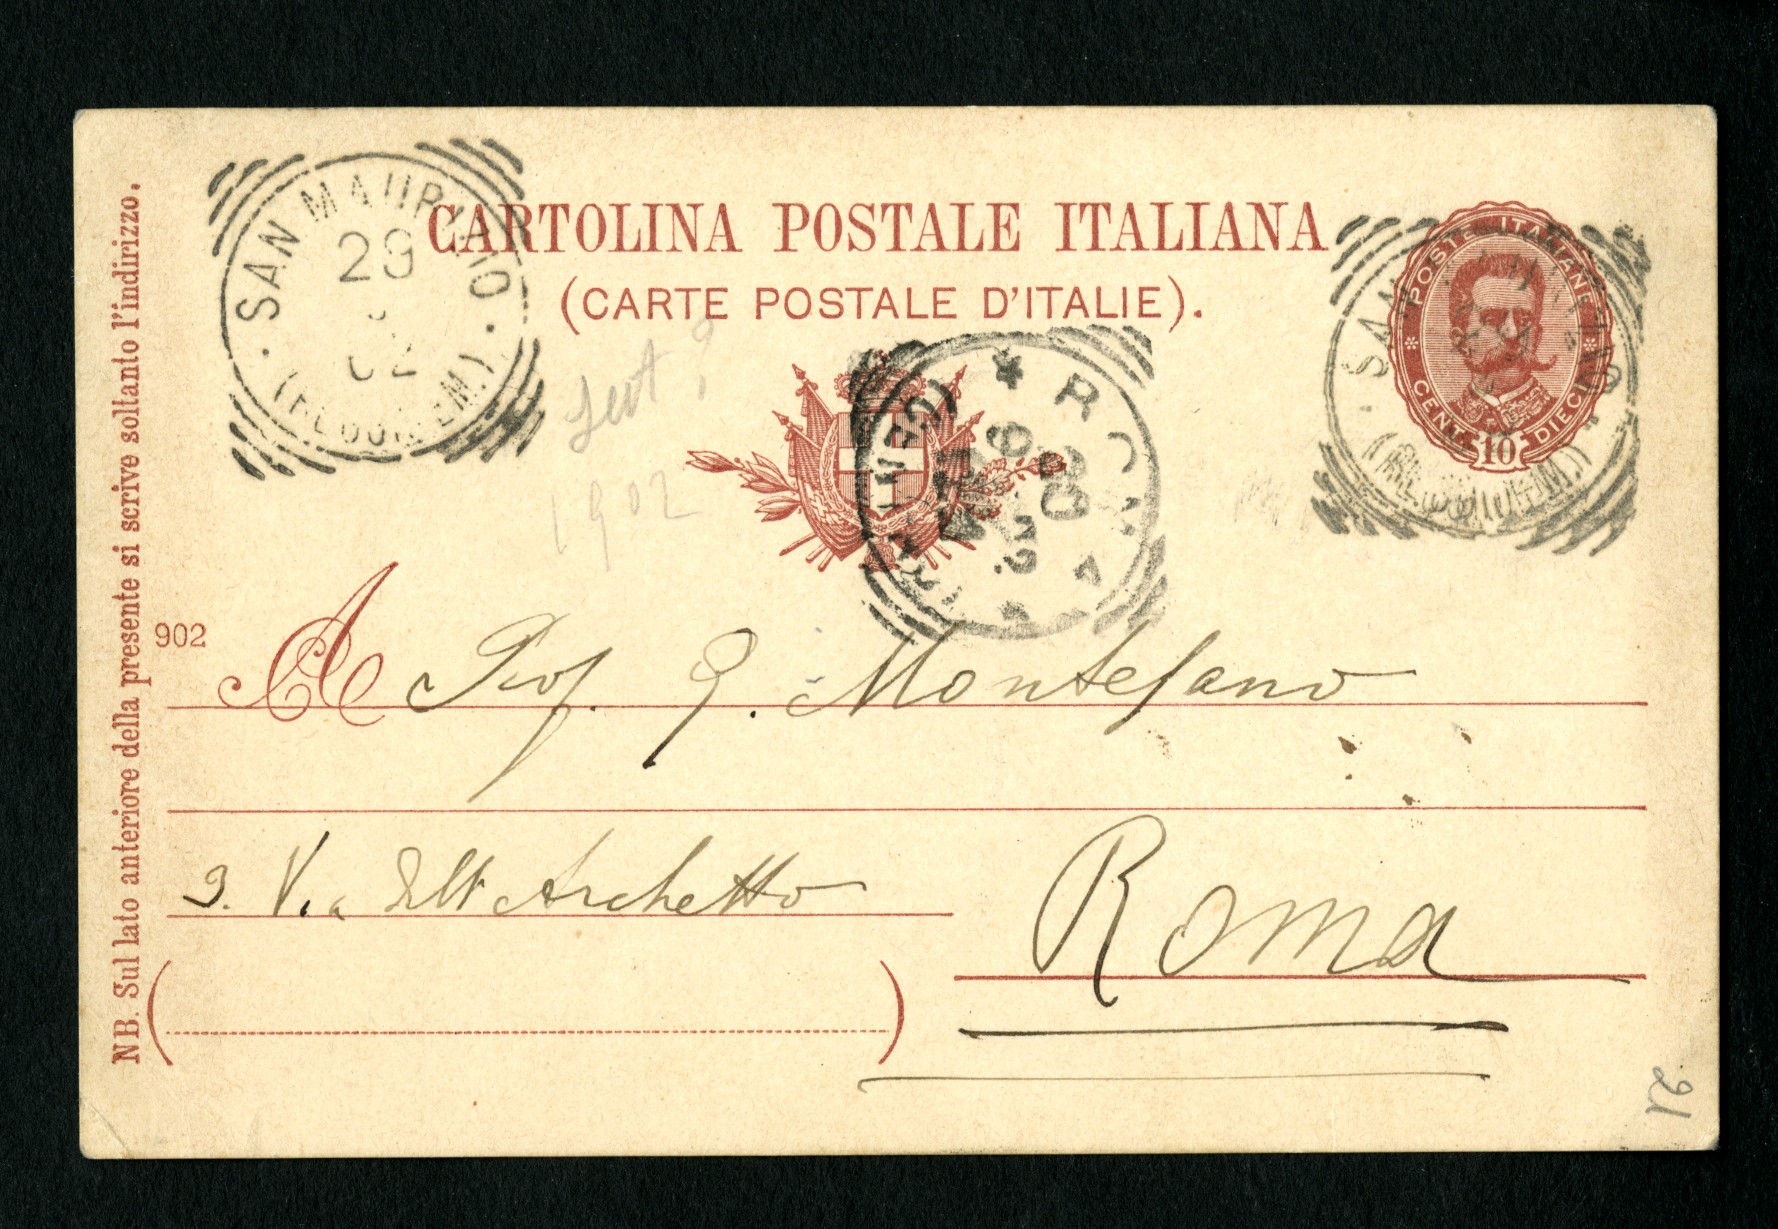 CARTOLINA POSTALE ITALIANA
(CARTE POSTALE D'ITALIE).
SAN MAURIZIO
29
02
(REGGIO EM.)
POSTE ITALIANE
CENT. 10 DIECI
SAN MAURIZIO
(REGGIO EM.)
ROMA
30
9-02
Sett?
1902
902
NB. Sul lato anteriore della presente si scrive soltanto l'indirizzo.
A Prof. G. Montesano
3. Via Dell'Archetto
Roma
( )
21